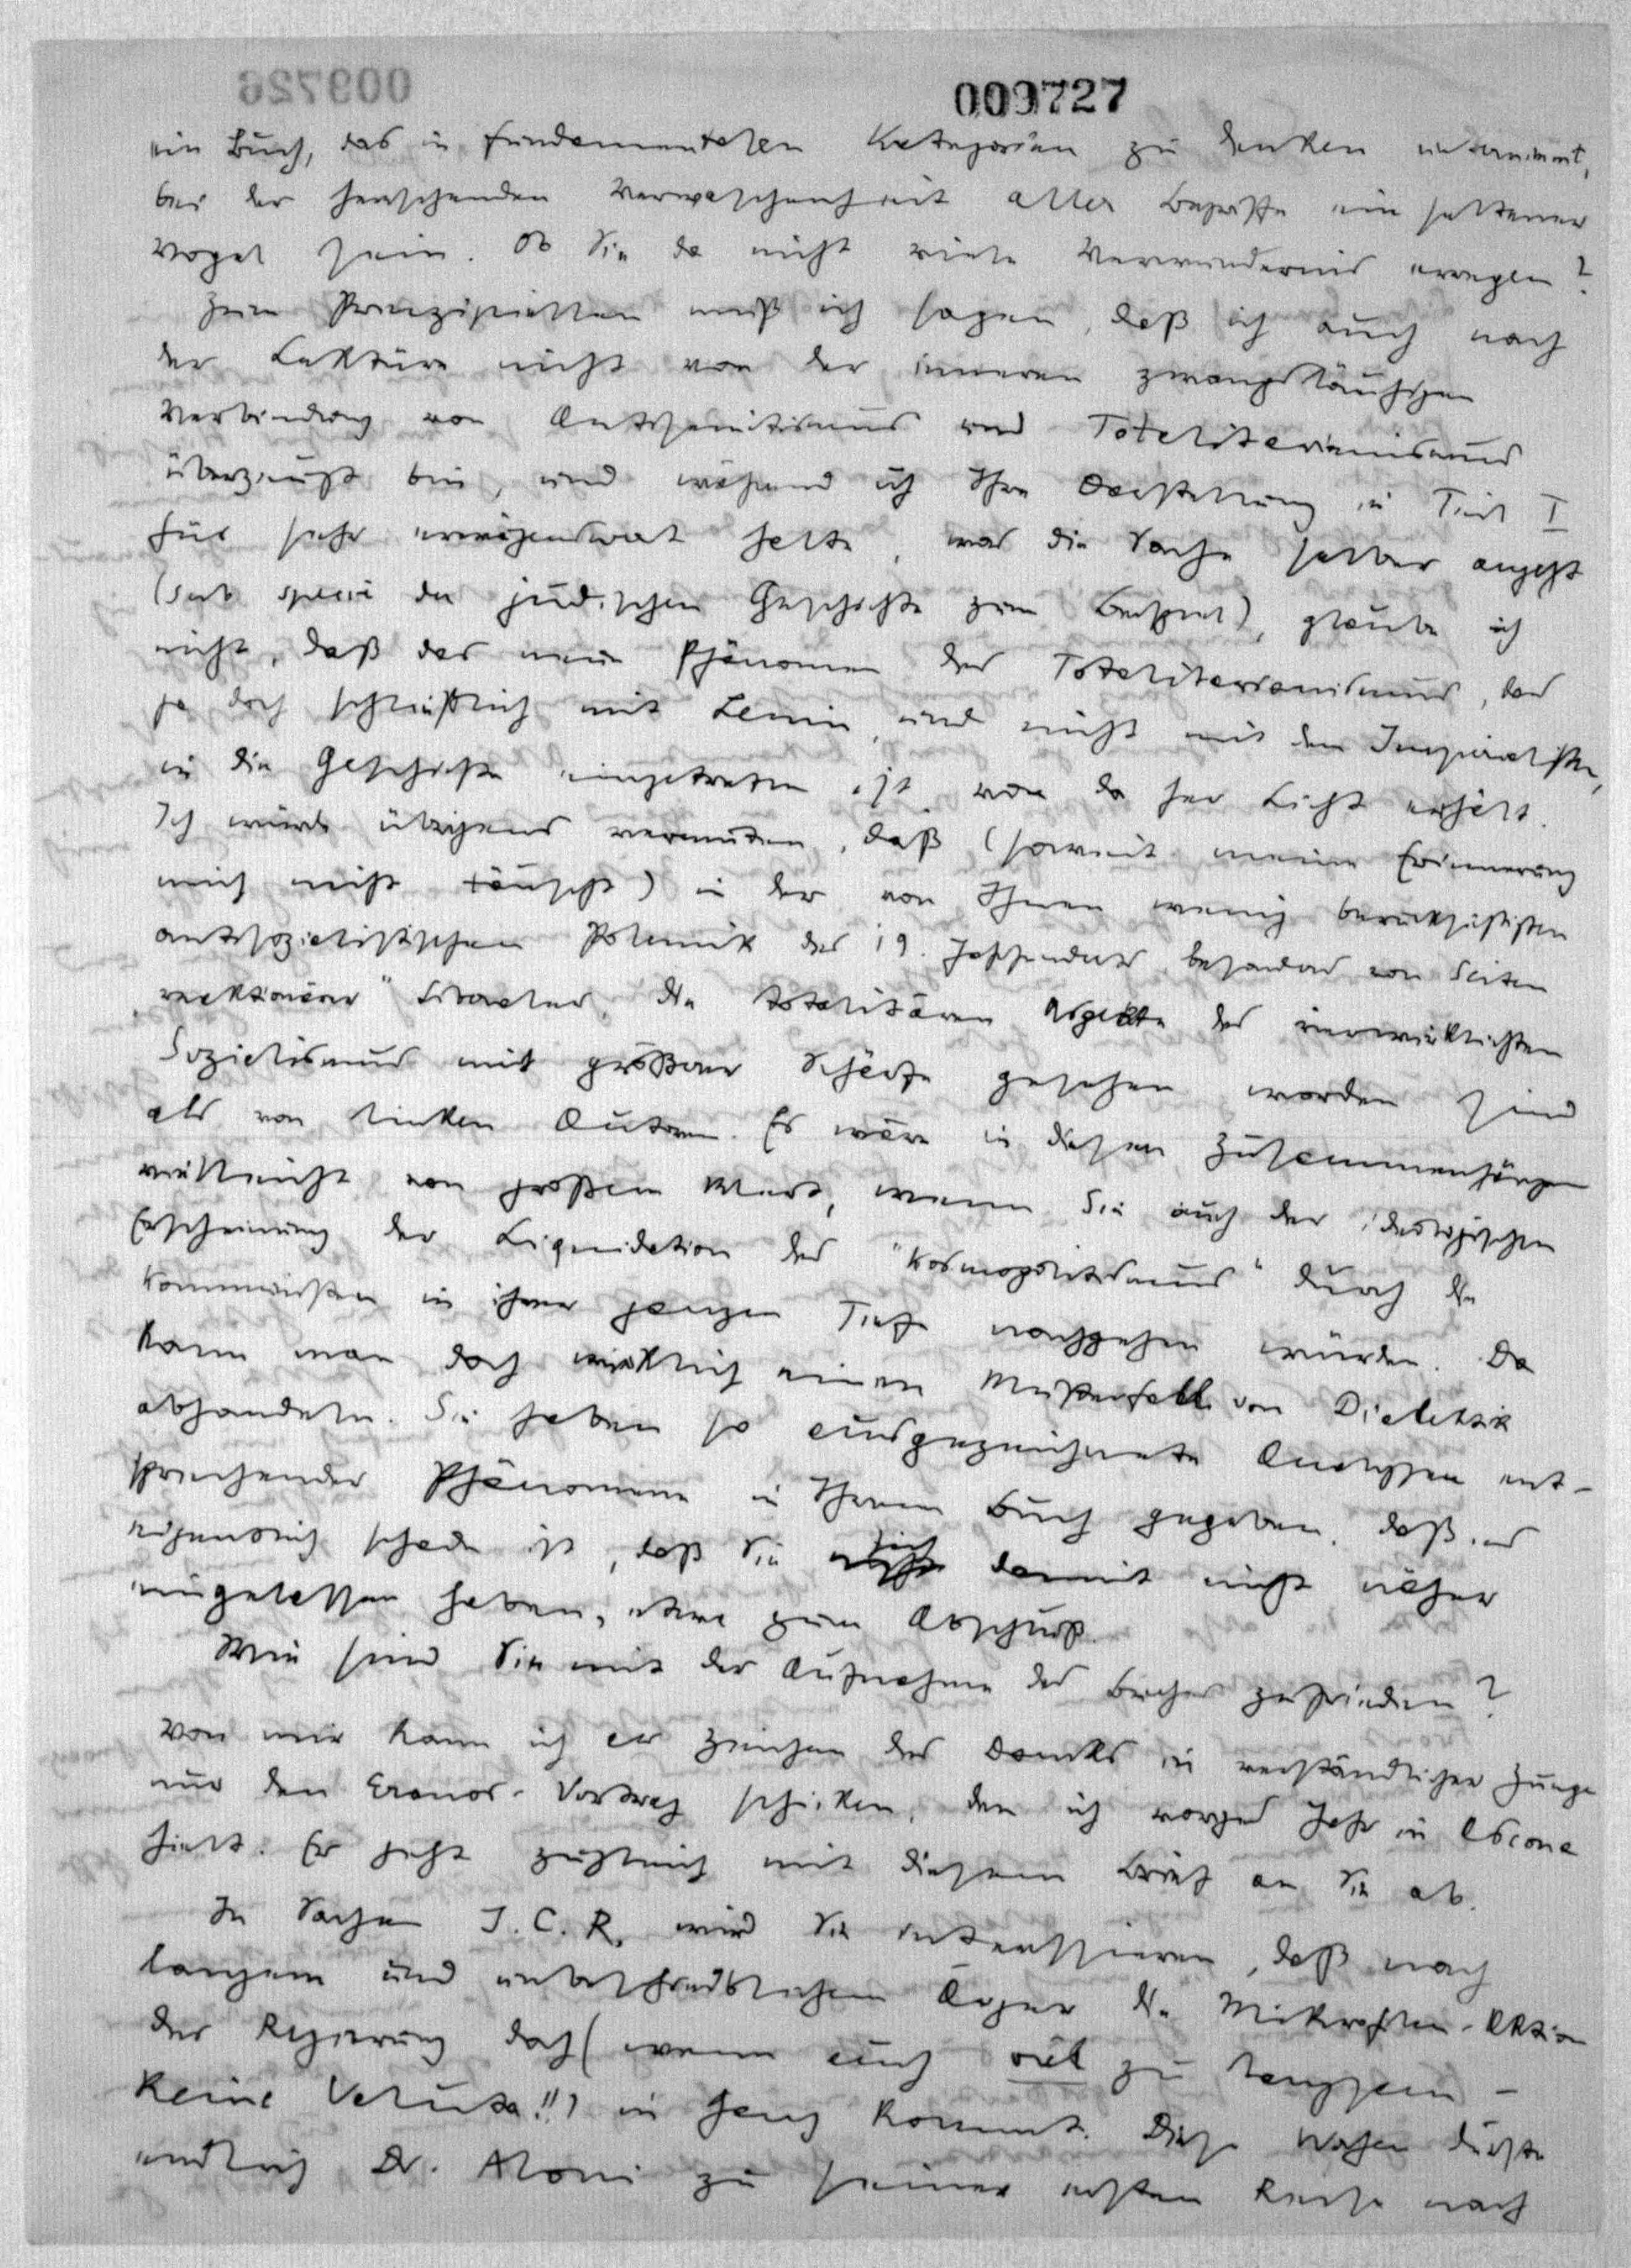 009726
009727
ein Buch, das in fundamentalen Kategorien zu denken unternimmt,
bei der herrschenden Verwaschenheit aller Begriffe ein seltener
Vogel sein. Ob Sie da nicht viele Verwundernis erregen?
Zum Prinzipiellen muß ich sagen, daß ich auch nach
der Lektüre nicht von der inneren zwangsläufigen
Verbindung von Antisemitismus und Totalitarianismus
überzeugt bin, und während ich Ihre Darstellung in Teil I
für sehr erwägenswert halte, was die Sache selber angeht
(sub specie der jüdischen Geschichte zum Beispiel), glaube ich
nicht, daß das neue Phänomen des Totalitarianismus, das
ja doch schließlich mit Lenin, und nicht mit den Imperialisten,
in die Geschichte eingetreten ist, von da her Licht erhält.
Ich würde übrigens vermuten, daß (soweit meine Erinnerung
mich nicht täuscht) in der von Ihnen wenig berücksichtigten
antisozialistischen Polemik des 19. Jahrhunderts, besonders von Seiten
„reaktionärer“ Liberaler, die totalitären Aspekte des verwirklichten
Sozialismus mit größerer Schärfe gesehen worden sind
als von linken Autoren. Es wäre in diesen Zusammenhängen
vielleicht von großem Wert, wenn Sie auch der ideologischen
Erscheinung der Liquidation des "Kosmopolitismus" durch die
Kommunisten in ihrer ganzen Tiefe nachgehen würden. Da
kann man doch wirklich einen Musterfall von Dialektik
abhandeln. Sie haben so ausgezeichnete Analysen ent-
sprechender Phänomene in Ihrem Buch gegeben, daß es
eigentlich schade ist, daß Sie sich damit nicht näher
eingelassen haben, etwa zum Abschluß.
Wie sind Sie mit der Aufnahme des Buches zufrieden?
Von mir kann ich als Zeichen des Danks in verständlicher Zunge
nur den Eranos-Vortrag schicken, den ich voriges Jahr in Ascona
hielt. Er geht zugleich mit diesem Brief an Sie ab.
In Sachen J.C.R. wird Sie interessieren, daß nach
langem und unbeschreiblichem Ärger die Mikrofilm-Aktion
der Regierung doch (wenn auch viel zu langsam –
keine Valuta!!) in Gang kommt. Diese Wochen dürfte
endlich Dr. Aloni zu seiner ersten Reise nach